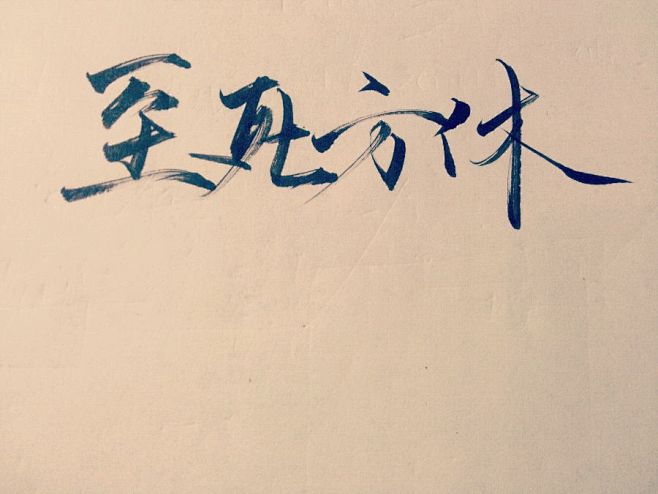 至死方休